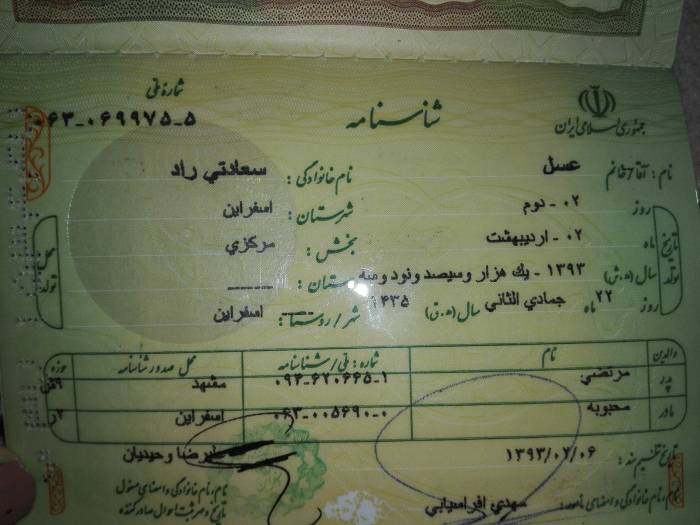 جمهوری اسلامی ایران
شناسنامه
شماره ملی
۰۶۳-۰۶۹۹۷۵-۵
نام: آقا/خانم عسل
نام خانوادگی: سعادتي راد
تاریخ تولد
روز ۰۲ - دوم
شهرستان: اسفراین
ماه ۰۲ - اردیبهشت
بخش: مرکزي
سال (ه.ش) ۱۳۹۳ - یك هزار و سیصد و نود و سه
دهستان: ــــــ
روز ۲۲ ماه جمادي الثاني سال (ه.ق) ۱۴۳۵
شهر/روستا: اسفراین
محل تولد
والدین نام شماره: ملی/شناسنامه محل صدور شناسنامه حوزه
پدر مرتضي ۰۹۴-۶۲۰۶۶۵-۱ مشهد
مادر محبوبه ۰۶۳-۰۰۵۶۹۰-۰ اسفراین
تاریخ تنظیم سند: ۱۳۹۳/۰۲/۰۶
علیرضا وحیدیان
نام، نام خانوادگی و امضای مامور: مهدي افراسیابي
نام، نام خانوادگی و امضای مسئول
تاریخ و مهر ثبت احوال صادر کننده